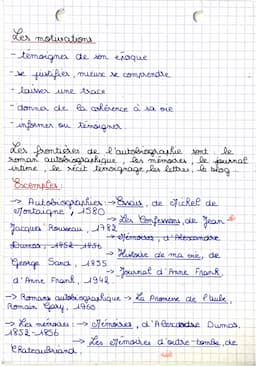 Les motivations
- témoigner de son époque
- se justifier, mieux se comprendre
- laisser une trace
- donner de la cohérence à sa vie
- informer ou témoigner
Les frontières de l'autobiographie sont le
roman autobiographique, les mémoires, le journal
intime, le récit témoignage, les lettres, le blog.
Exemples:
→ Autobiographies → Essais, de Michel de
Montaigne, 1580
→ Les Confessions, de Jean
Jacques Rousseau, 1782
→ Mémoires, d'Alexandre
Dumas, 1852-1856
→ Histoire de ma vie, de
George Sand, 1855
→ Journal d'Anne Frank,
d'Anne Frank, 1942
→ Romans autobiographique → La Promesse de l'aube,
Romain Gary, 1960
→ Les mémoires: → Mémoires, d'Alexandre Dumas,
1852-1856
→ Les Mémoires d'outre-tombe, de
Chateaubriand.